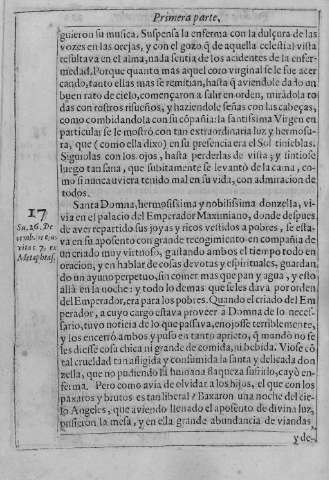 Primera parte,
guieron su musica. Suspensa la enferma con la dulçura de las
vozes en las orejas, y con el gozo q̃ de aquella celestial vista
resultava en el alma, nada sentia de los acidentes de la enfer-
medad. Porque quanto màs aquel coro virginal se le fue acer
cando, tanto ellas mas se remitian, hasta q̃ aviendole dado un
buen rato de cielo, començaron a salir en orden, mirádola to
das con rostros risueños, y haziendole señas con las cabeças,
como combidandola con su cõpañia: la santissima Virgen en
particular se le mostrò con tan extraordinaria luz y hermosu-
ra, que (como ella dixo) en su presencia era el Sol tinieblas.
Siguiolas con los ojos, hasta perderlas de vista; y sintiose
luego tan sana, que subitamente se levantò de la cama, co-
mo si nunca uviera tenido mal en su vida, con admiracion de
todos.
17
Su. 26. De
Metaphras.
Santa Domna, hermosissima y nobilissima donzella, vi-
via en el palacio del Emperador Maximiano, donde despues
de aver repartido sus joyas y ricos vestidos a pobres, se esta-
va en su aposento con grande recogimiento en compañia de
un criado muy virtuoso, gastando ambos el tiempo todo en
oracion, y en hablar de cosas devotas y espirituales, guardan
do un ayuno perpetuo, sin comer mas que pan y agua, y esto
allà en la noche: y todo lo demas que se les dava por orden
del Emperador, era para los pobres. Quando el criado del Em
perador, a cuyo cargo estava proveer a Domna de lo neces-
sario, tuvo noticia de lo que passava, enojose terriblemente,
y los encerrò ambos y puso en tanto aprieto, q̃ mandò no se
les diesse cosa chica ni grande de comida, ni bebida. Viose cõ
tal crueldad tan afligida y consumida la santa y delicada don
zella, que no pudiendo la humana flaqueza sufrirlo, cayò en-
ferma. Pero como avia de olvidar a los hijos, el que con los
paxaros y brutos es tan liberal? Baxaron una noche del cie-
lo Angeles, que aviendo llenado el aposento de divina luz,
pusieron la mesa, y en ella grande abundancia de viandas,
y de-